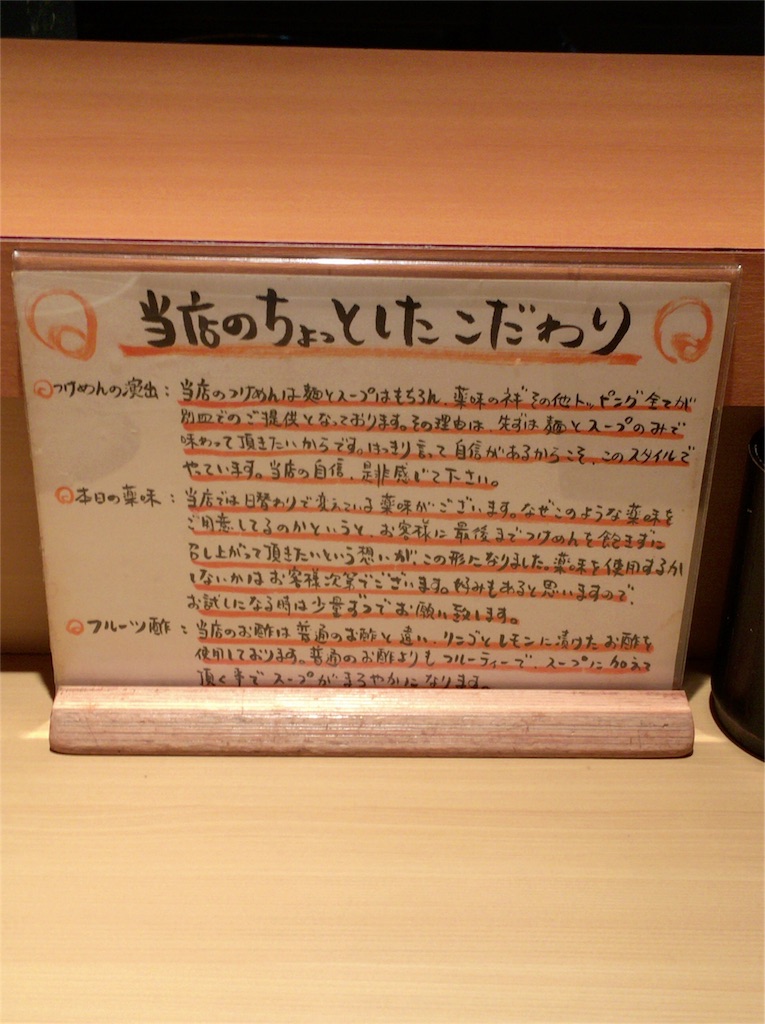 当店のちょっとしたこだわり
つけめんの演出：当店のつけめんは麺とスープはもちろん、薬味のネギその他トッピング全てが
別皿でのご提供となっております。その理由は、先ずは麺とスープのみで
味わって頂きたいからです。はっきり言って自信があるからこそ、このスタイルで
やっています。当店の自信、是非感じて下さい。
本日の薬味：当店では日替わりで変えている薬味がございます。なぜこのような薬味を
ご用意してるのかというと、お客様に最後までつけめんを飽きずに
召し上がって頂きたいという想いが、この形になりました。薬味を使用するか
しないかはお客様次第でございます。好みもあると思いますので、
お試しになる時は少量ずつでお願い致します。
フルーツ酢：当店のお酢は普通のお酢と違い、リンゴとレモンに漬けたお酢を
使用しております。普通のお酢よりもフルーティーで、スープに加えて
頂く事でスープがまろやかになります。